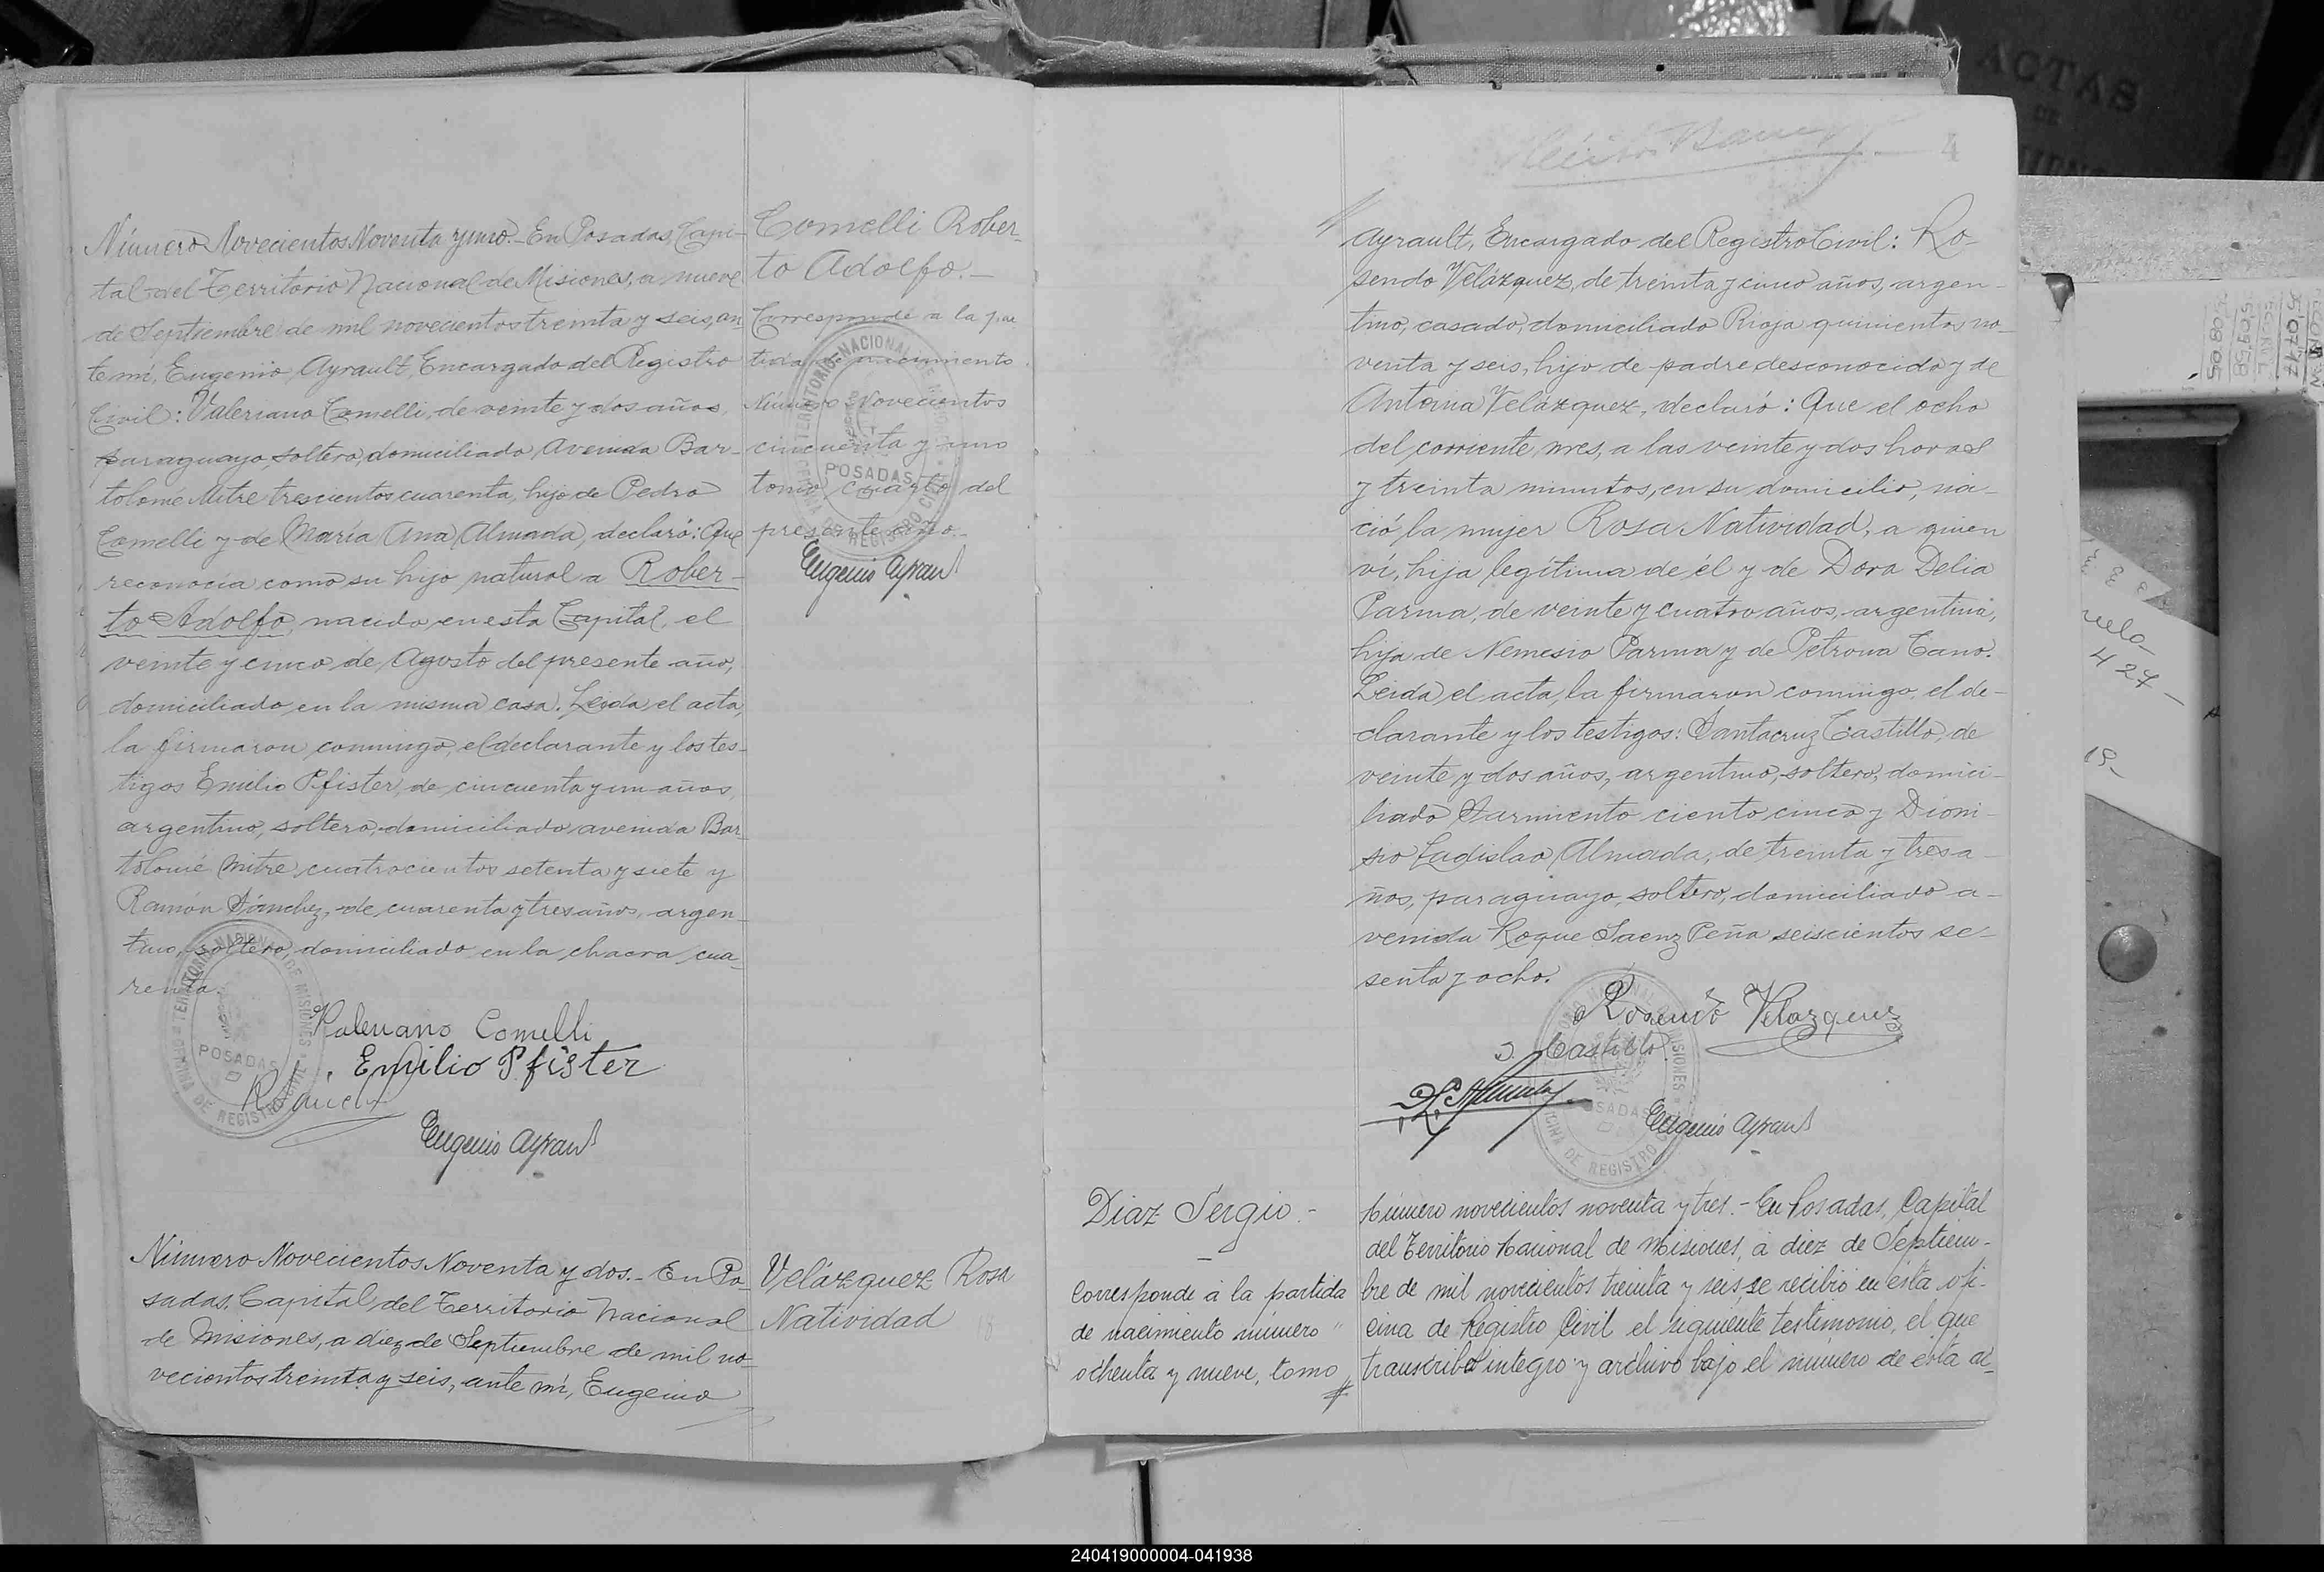 Número Novecientos Noventa y uno.- En Posadas, Capi-
tal del Territorio Nacional de Misiones, a nueve
de Septiembre de mil novecientos treinta y seis, an
te mí, Eugenio Ayrault, Encargado del Registro
Civil: Valeriano Comelli, de veinte y dos años,
paraguayo, soltero, domiciliado Avenida Bar-
tolomé Mitre trescientos cuarenta, hijo de Pedro
Comelli y de María Ana Almada, declaró: Que
reconocía como su hijo natural a Rober-
to Adolfo, nacido en esta Capital, el
veinte y cinco de Agosto del presente año,
domiciliado en la misma casa. Leida el acta,
la firmaron conmigo, el declarante y los tes-
tigos Emilio Pfister, de cincuenta y un años,
argentino, soltero, domiciliado avenida Bar
tolomé Mitre cuatrocientos setenta y siete y
Ramón Sánchez, de cuarenta y tres años, argen-
tino, soltero, domiciliado en la chacra cua-
renta.
Valeriano Comelli
Emilio Pfister
Eugenio Ayrault
OFICINA DE REGISTRO CIVIL TERRITORIO NACIONAL DE MISIONES
POSADAS
Comelli Rober-
to Adolfo.-
Corresponde a la par
tida de nacimiento
Número Novecientos
cincuenta y uno
tomo cuarto del
presente año.-
Eugenio Ayrault
OFICINA DE REGISTRO CIVIL TERRITORIO NACIONAL DE MISIONES
POSADAS
Número Novecientos Noventa y dos.- En Po-
sadas, Capital del Territorio Nacional
de Misiones, a diez de Septiembre de mil no-
vecientos treinta y seis, ante mí, Eugenio
Velázquez Rosa
Natividad
4
Ayrault, Encargado del Registro Civil: Ro-
sendo Velázquez, de treinta y cinco años, argen-
tino, casado, domiciliado Rioja quinientos no-
venta y seis, hijo de padre desconocido y de
Antonia Velázquez, declaró: Que el ocho
del corriente mes, a las veinte y dos horas
y treinta minutos, en su domicilio, na-
ció la mujer Rosa Natividad, a quien
ví, hija legítima de él y de Dora Delia
Parma, de veinte y cuatro años, argentina,
hija de Nemesio Parma y de Petrona Cano.
Leida el acta, la firmaron conmigo, el de-
clarante y los testigos: Santacruz Castillo, de
veinte y dos años, argentino, soltero, domici-
liado Sarmiento ciento cinco y Dioni-
sio Ladislao Almada, de treinta y tres a-
ños, paraguayo, soltero, domiciliado a-
venida Roque Saenz Peña seiscientos se-
senta y ocho.
Rosendo Velazquez
S. Castillo
D. L. Almada
Eugenio Ayrault
OFICINA DE REGISTRO CIVIL TERRITORIO NACIONAL DE MISIONES
POSADAS
Diaz Sergio.-
Corresponde á la partida
de nacimiento número
ochenta y nueve, tomo
Número novecientos noventa y tres.- En Posadas, Capital
del Territorio Nacional de Misiones, á diez de Septiem-
bre de mil novecientos treinta y seis, se recibió en ésta ofi-
cina de Registro Civil el siguiente testimonio, el que
transcribo íntegro y archivo bajo el número de ésta ac-
ACTAS
DE
427
19-
240419000004-041938